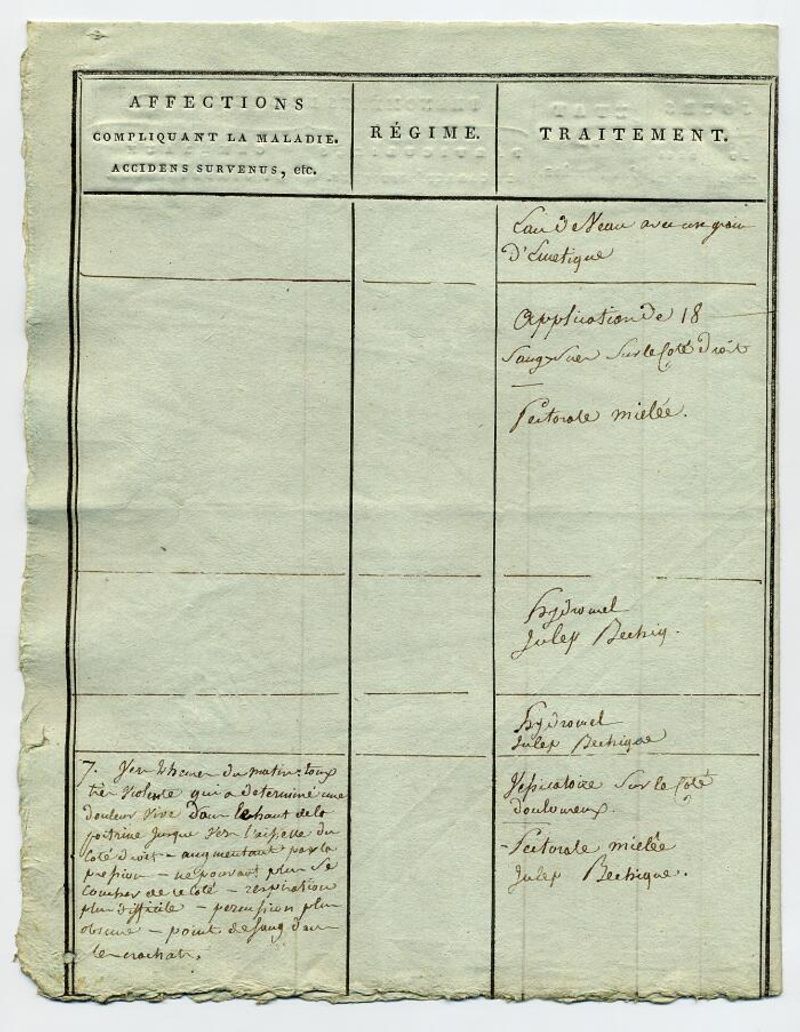 AFFECTIONS
COMPLIQUANT LA MALADIE.
ACCIDENS SURVENUS, etc.
RÉGIME.
TRAITEMENT.
Eau de Veau avec un grain
D'Emetique
Application de 18
Sangsues Sur le Coté Droit
Pectorale mielée.
hydromel
Julep Bechiq.
hydromel
Julep Bechique
7. Vers 2 heures du matin, toux
très violente qui a determiné une
douleur vive dans le haut de la
poitrine jusque vers l'aisselle du
Coté droit – augmentant par la
pression – ne pouvant plus se
coucher de ce Coté – respiration
plus difficile – percussion plus
obscure – points de Sang dans
les crachats.
Vesicatoire Sur le Coté
douloureux.
- Pectorale mielée
Julep Bechique.